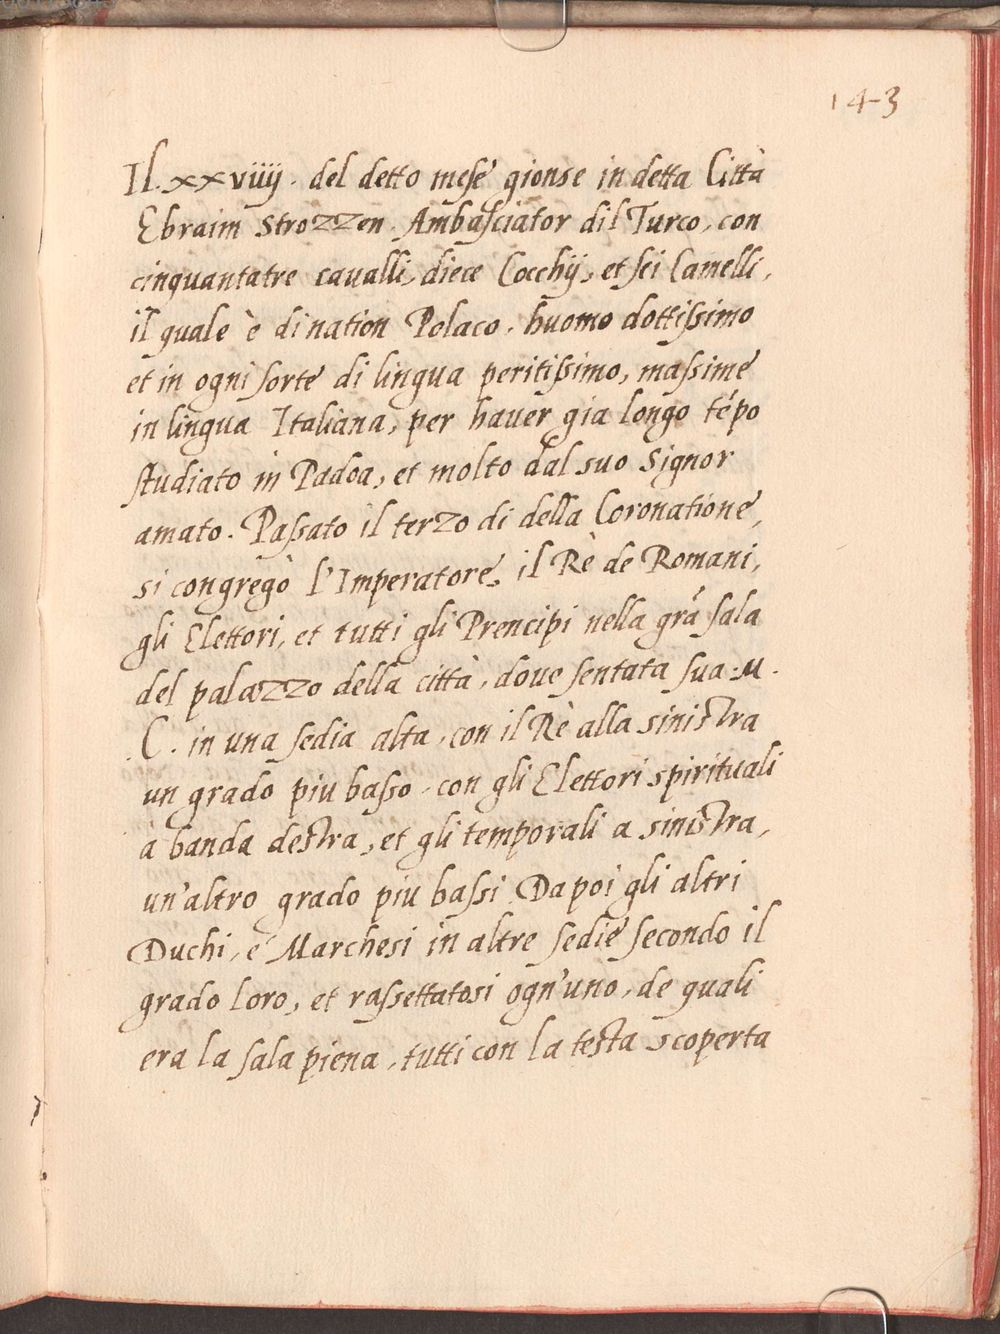 143
Il. xxviiij. del detto mese gionse in detta Città
Ebraim Strozzen. Ambasciator dil Turco, con
cinquantatre cavalli, diece Cocchij, et sei Camelli,
il quale è di nation Polaco. huomo dottissimo
et in ogni sorte di lingua peritissimo, massime
in lingua Italiana, per haver gia longo tẽpo
studiato in Padoa, et molto dal suo Signor
amato. Passato il terzo di della Coronatione,
si congregò l'Imperatore, il Rè de Romani,
gli Elettori, et tutti gli Prencipi nella grã sala
del palazzo della città, dove sentata sua .M.
C. in una sedia alta, con il Rè alla sinistra
un grado piu basso, con gli Elettori spirituali
à banda destra, et gli temporali a sinistra,
un'altro grado piu bassi. Dapoi gli altri
Duchi, e Marchesi in altre sedie secondo il
grado loro, et rassettatosi ogn'uno, de quali
era la sala piena, tutti con la testa scoperta